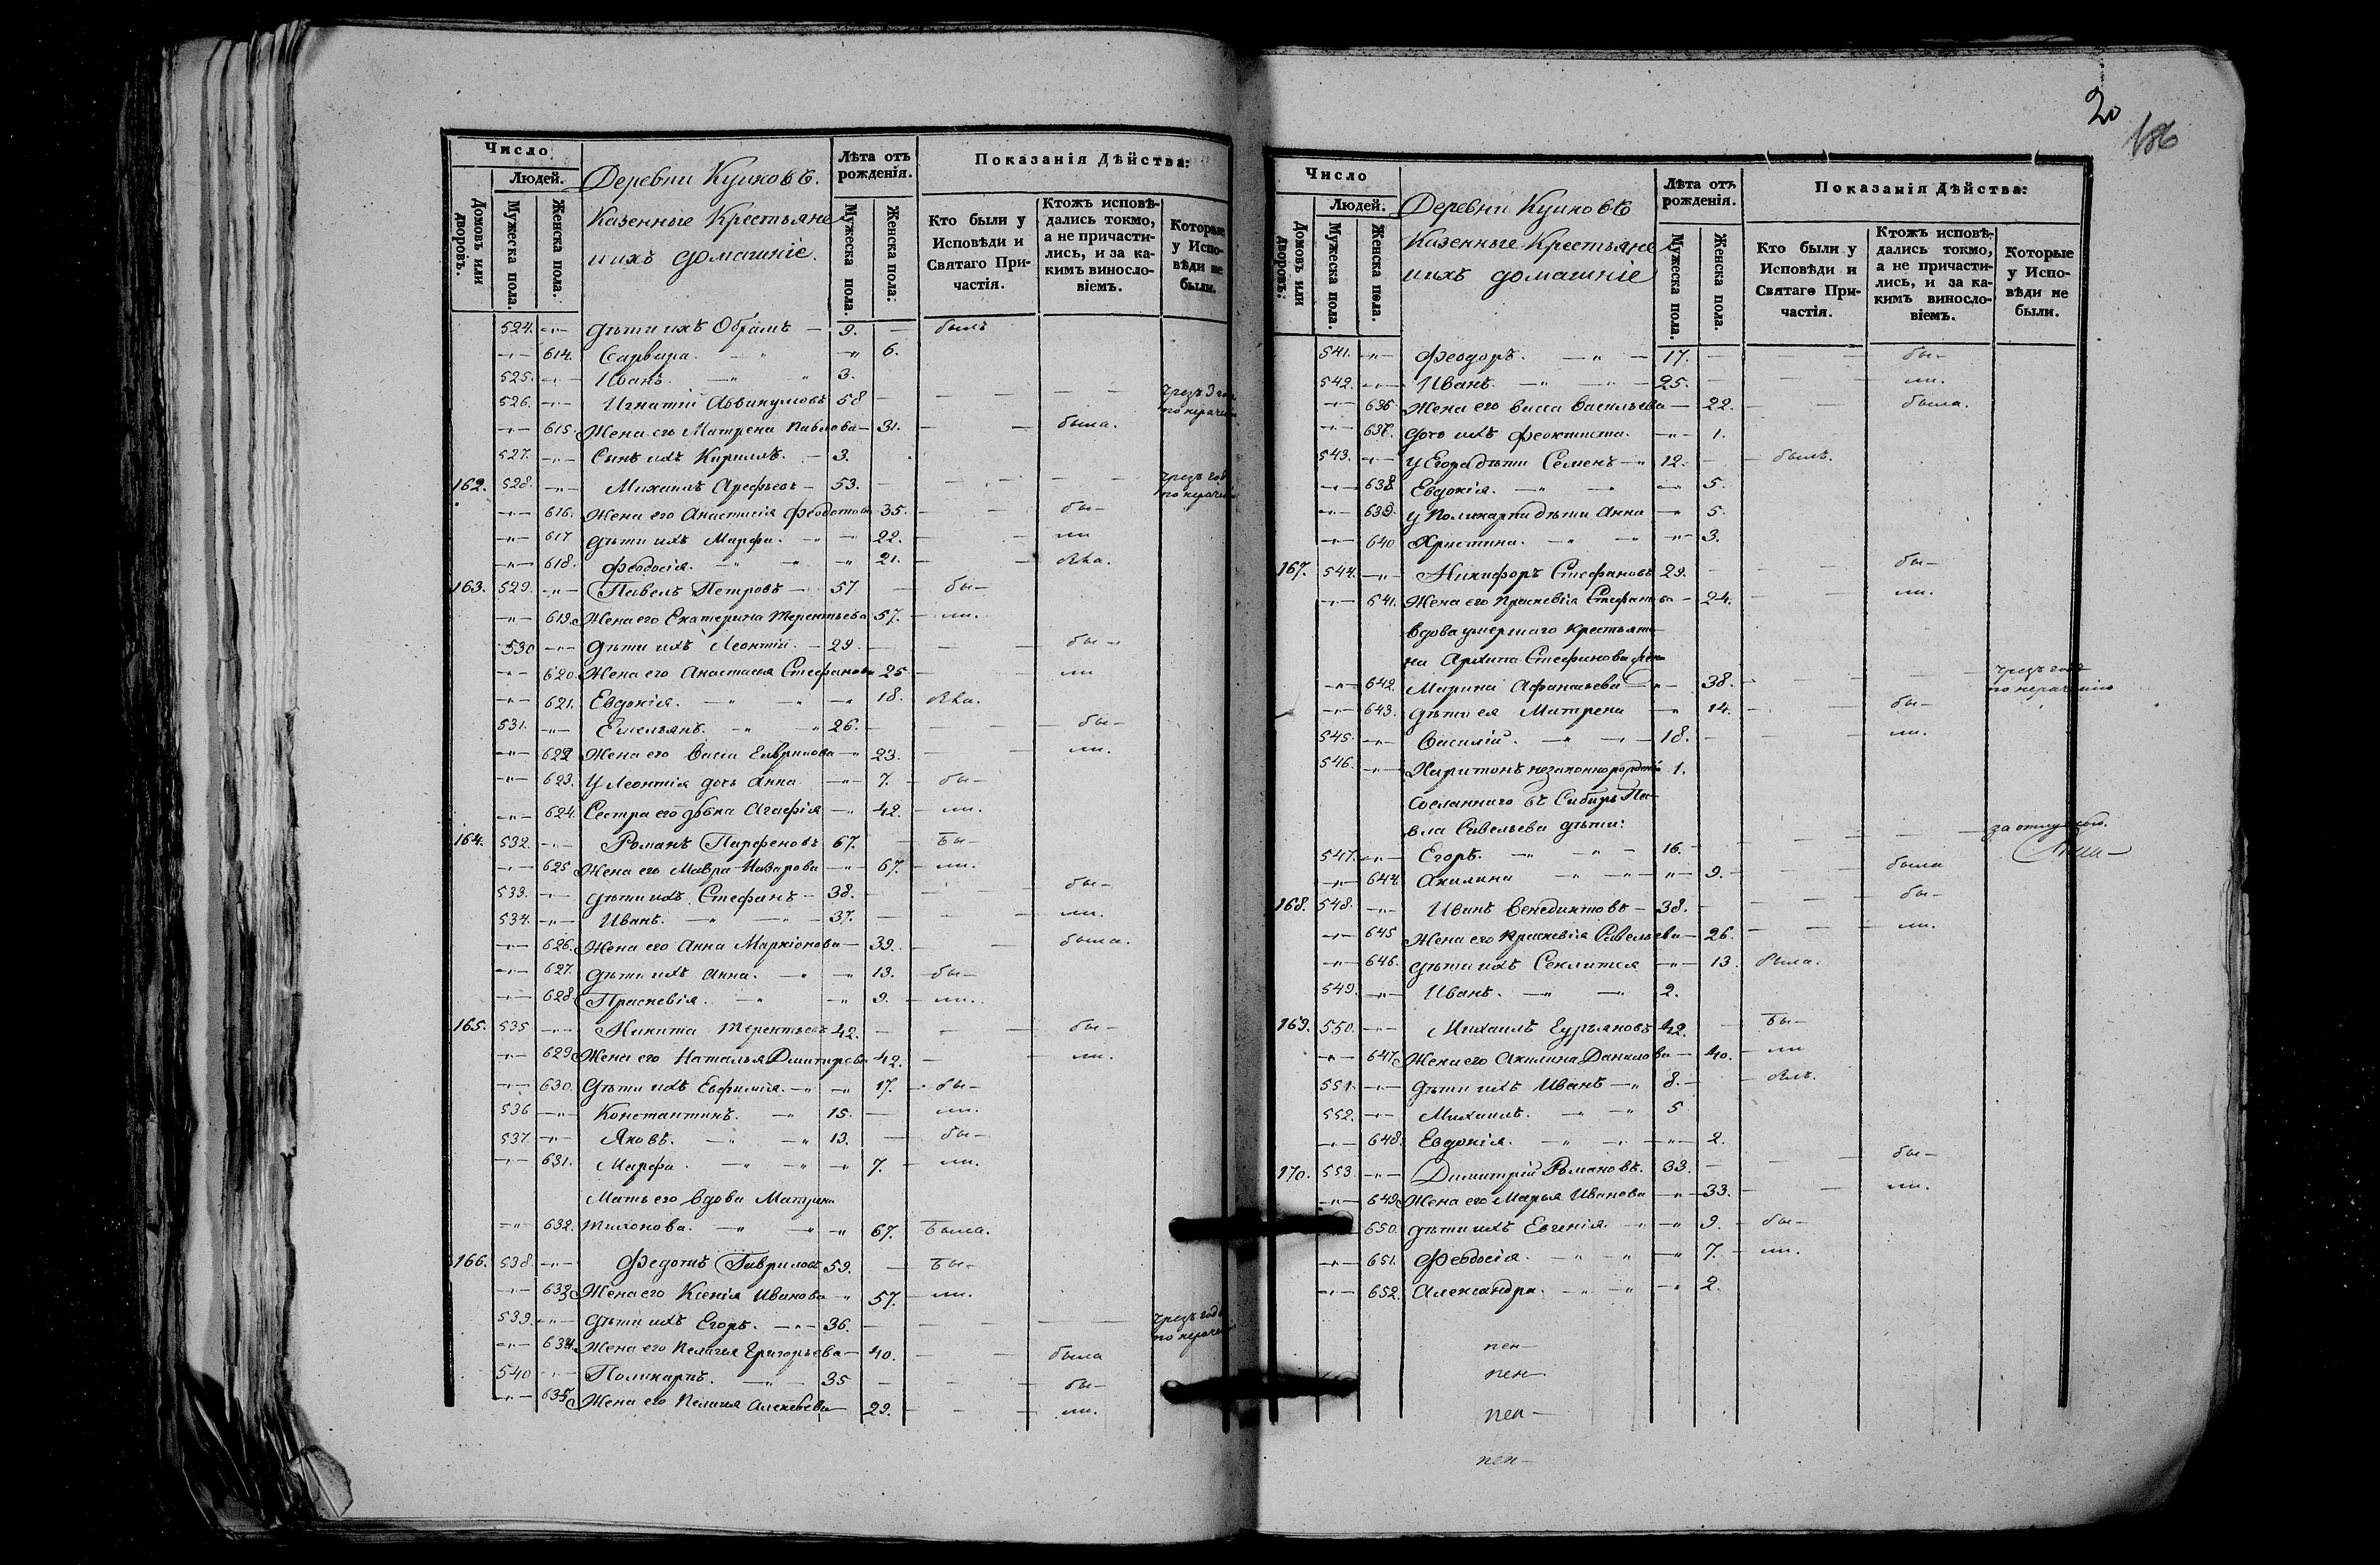 Число
Людей.
Домовъ или дворовъ.
Мужеска пола.
Женска пола.
Деревни
Казенные Крестьяне
и ихъ домашніе.
Лѣта отъ рожденія.
Мужеска пола.
Женска пола:
Показанія Дѣйства:
Кто были у Исповѣди и Святаго Причастія.
Ктожъ исповѣдались токмо, а не причастились, и за какимъ винословіемъ.
Которые у Исповѣди не были.
524. дѣти ихъ 9. былъ
614. 6.
525. Иванъ. 3.
526. Игнатій 58 чрезъ 3 го по нераче
615. Жена его Матрена Павлова 31. была.
527. Сынъ ихъ Кириллъ. 3.
162. 528. Михаилъ Арефьевъ 53. чрезъ год по нераче
616. Жена его Анастасія Феодотова 35. бы-
617 дѣти ихъ Марфа. 22. ли
618. Феодосія. 21.
163. 529. Павелъ Петровъ 57. бы-
619. Жена его Екатерина Терентьева 57. ли.
530 дѣти ихъ Леонтій. 29. бы-
620. Жена его Анастасія Стефанова 25 ли
621. Евдокія. 18.
531. Емельянъ. 26. бы-
622 Жена его Васса Гаврилова 23. ли.
623. У Леонтія дочь Анна 7. бы-
624. Сестра его дѣвка Агафія 42. ли.
164. 532. Романъ Парфеновъ 67. бы-
625 Жена его Мавра Назарова 67. ли.
533. дѣти ихъ Стефанъ 38. бы-
534. Иванъ. 37. ли.
626. Жена его Анна Маркіонова 39. была.
627. дѣти ихъ Анна. 13. бы-
628. Праскевія. 9. ли.
165. 535 Никита Терентьевъ 42. бы-
629 Жена его Наталья Дмитирева 42. ли.
630. Дѣти ихъ Евфимія. 17. бы-
536 Константинъ. 15. ли.
537. Яковъ. 13. бы-
631. Марфа. 7. ли.
Мать его вдова Матрена
632. Тихонова. 67. была.
166. 538. Федотъ Гавриловъ 59. бы-
633 Жена его Ксенія Иванова 57. ли.
539. Дѣти ихъ Егоръ. 36. чрезъ год по нераче
634. Жена его Пелагея Григорьева 40. была
540 Поликарпъ. 35 бы-
635 Жена его Пелагея Алексѣева 29. ли.
20
186
Число
Людей.
Домовъ или дворовъ:
Мужеска пола.
Женска пола.
Деревни
Казенные Крестьяне
и ихъ домашніе
Лѣта отъ рожденія.
Мужеска пола.
Женска пола.
Показанія Дѣйства:
Кто были у Исповѣди и Святаго Причастія.
Ктожъ исповѣдались токмо, а не причастились, и за какимъ винословіемъ.
Которые у Исповѣди не были.
541. Феодоръ. 17. бы-
542. Иванъ. 25. ли.
636 Жена его Васса Васильева 22. была.
637. дочь ихъ Феоктиста. 1.
543. у Егора дѣти Семенъ 12. былъ.
638 Евдокія. 5.
639. у Поликарпа дѣти Анна 5.
640 Христина. 3.
167. 544. Никифоръ Стефановъ 29. бы-
641. Жена его Праскевія Стефанова 24. ли.
Вдова умершаго крестьяни-
на Архипа Стефанова жена
642. Марина Афанасьева 38. чрезъ годъ по нераченію
643. дѣти ея Матрена 14. бы-
545. Василій. 18. ли.
546. Харитонъ незаконнорожденый 1.
Сосланнаго въ Сибирь Па-
вла Савельева дѣти:
547. Егоръ. 16. за отлучкою.
644 Акилина 9. была
168. 548. Иванъ Венедиктовъ 38. бы-
645 Жена его Праскевія Савельева 26. ли.
646. дѣти ихъ Секлитея 13. была.
549. Иванъ. 2.
169. 550. Михаилъ 42. бы-
647 Жена его Акилина Данилова 40. ли
551. дѣти ихъ Иванъ 8.
552. Михаилъ. 5
648. Евдокія. 2.
170. 553. Димитрій Романовъ. 33. бы-
649 Жена его Марья Иванова 33. ли.
650. дѣти ихъ Евгенія. 9. бы-
651. Феодосія. 7. ли.
652. Александра. 2.